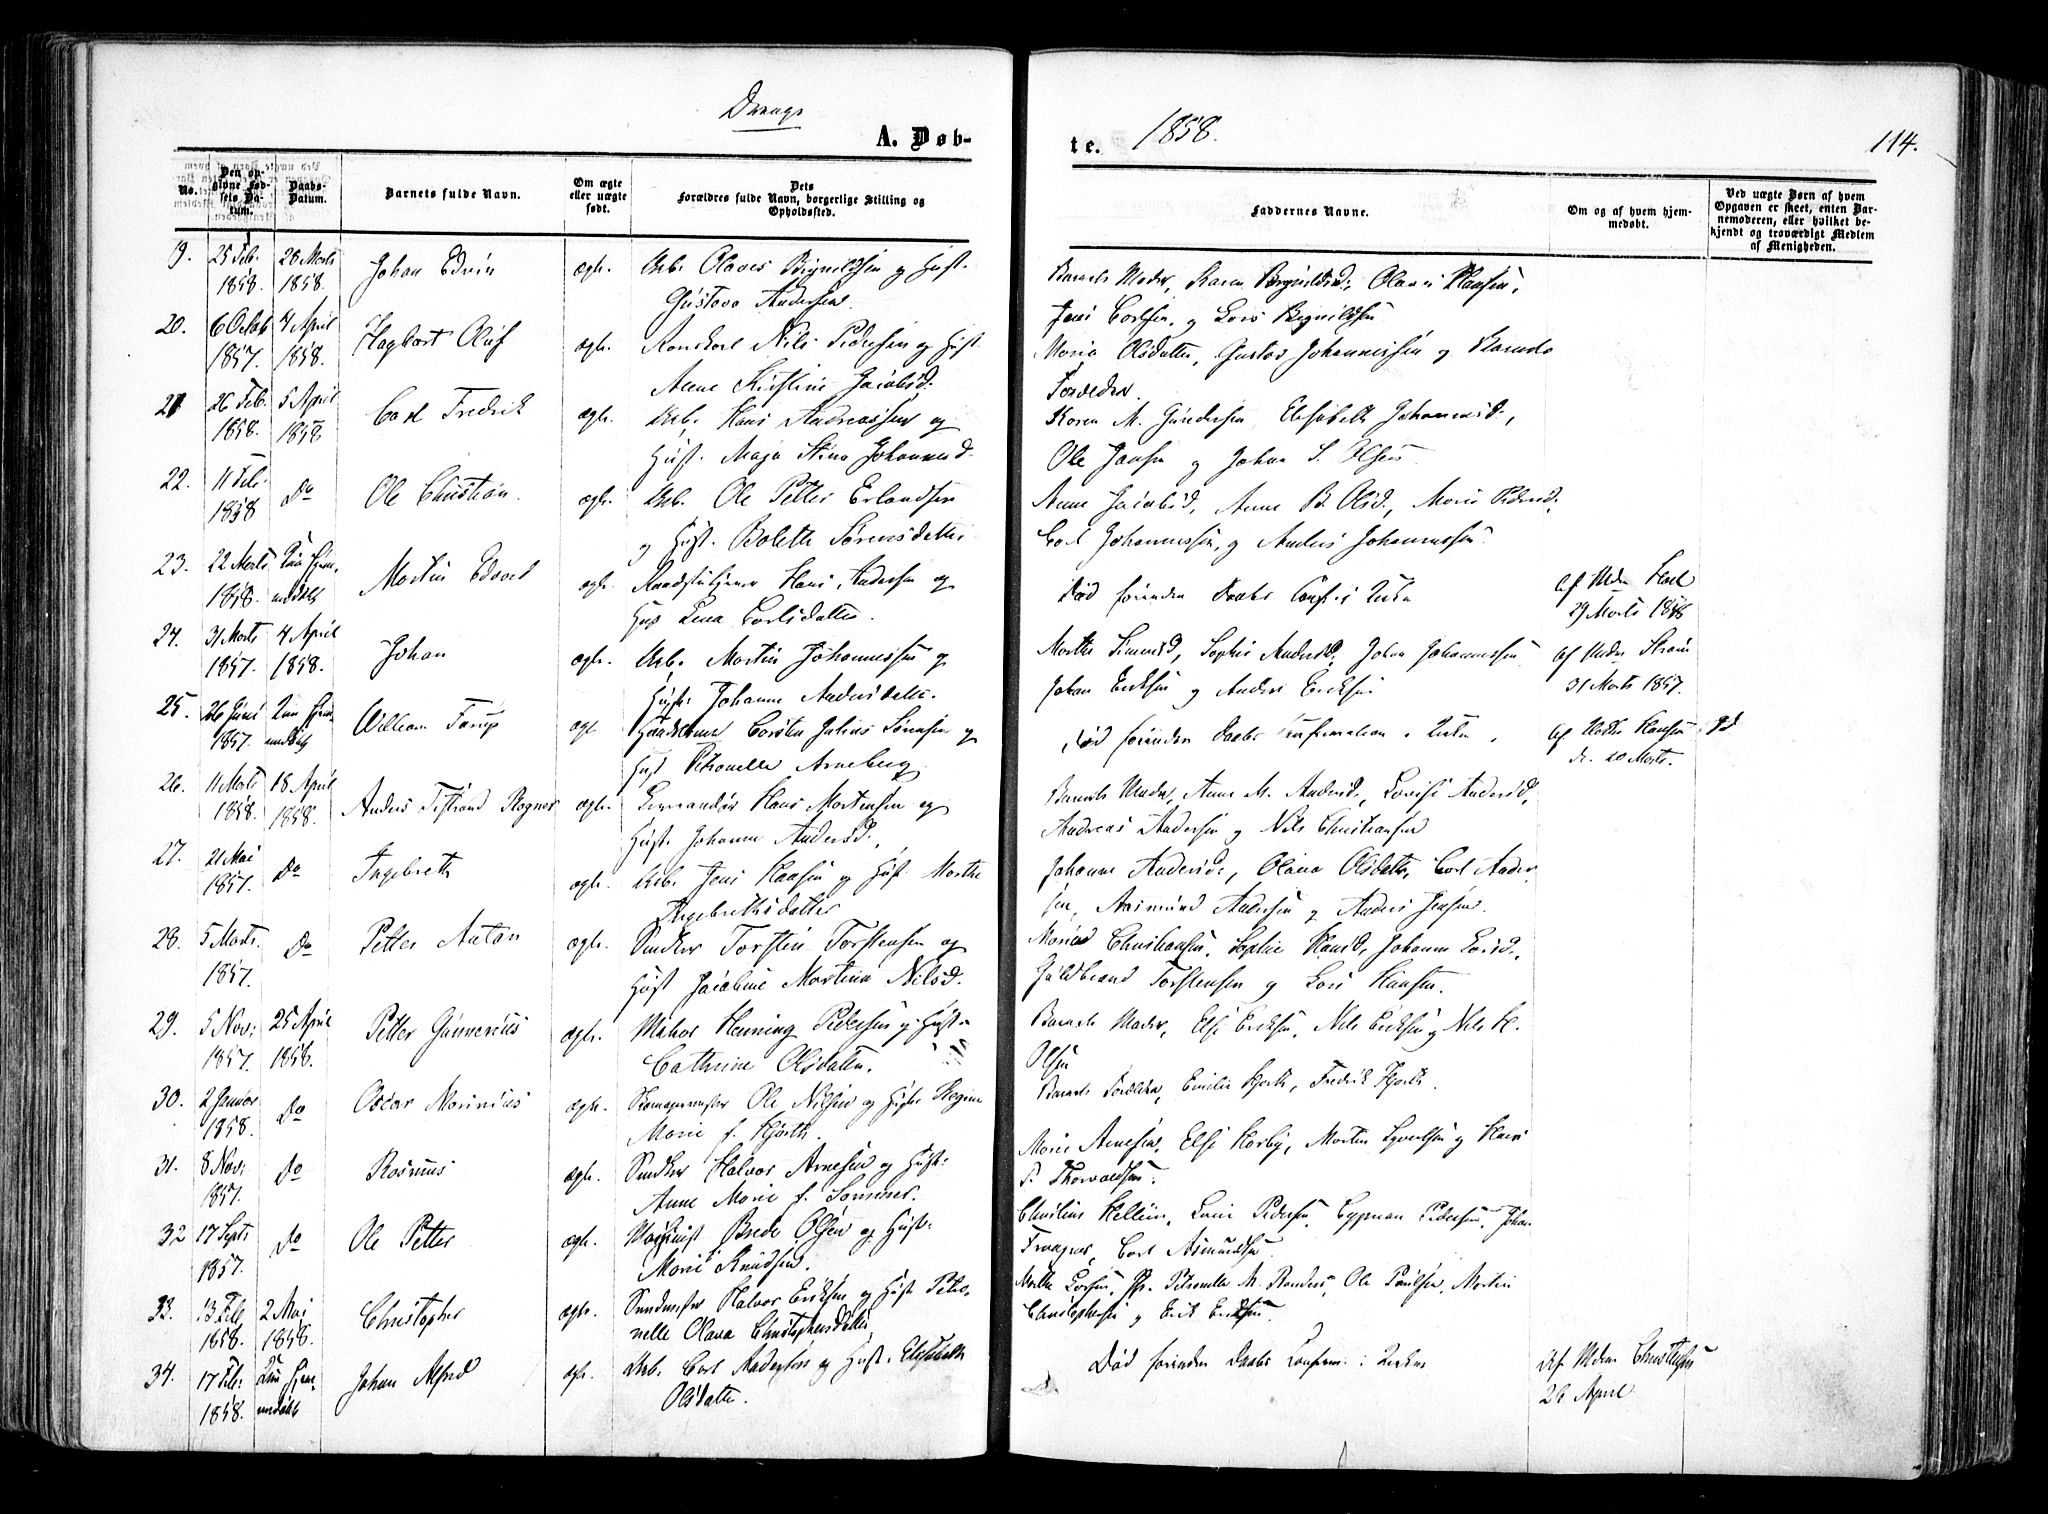 Drenge
A. Døb-
No.
Den opgivne Fødsels Datum.
Daabs-Datum.
Barnets fulde Navn.
Om ægte eller uægte født.
Dets Forældres fulde Navn, borgerlige Stilling og Opholdssted.
19. 25 Feb. 1858. 28 Marts 1858. Johan Edvin ægte. Arb. Olaves Bignildsen og Hust.
Gustava Andersen.
20. 6 Octob 1857. 4 April 1858. Hagbart Oluf ægte. Nils Pedersen og Hust.
Anne Kirstine Jacobsd.
21 26 Feb. 1858. 5 April 1858 Carl Fredrik ægte. Arb. Hans Andreassen og
Hust. Maja Stina Johannesd.
22. 11 Feb. 1858 Do Ole Christian. ægte. Arb. Ole Petter Erlandsen
og Hust. Bolette Sørensdatter
23. 22 Marts 1858. Martin Edvard ægte. Hans Andersen og
Hus Lena Carlsdatter.
24. 31 Marts 1857. 4 April 1858. Johan ægte. Arb. Martin Johannessen og
Hust. Johanne Andersdatter.
25. 26 Juni 1857. William Tarup ægt Carsten Julius Sørensen og
Hust Petronelle Arneberg
26. 11 Marts 1858. 18 April 1858. Anders Tistrand Ragner ægte. Hans Mortensen og
Hust. Johanne Andersd.
27. 21 Mai 1857. Do Ingebreth ægte. Arb. Jens Hansen og Hust. Marthe
Ingebrethsdatter
28. 5 Marts. 1857. Do Petter Anton ægte. Snedker Torsten Torstensen og
Hust Jacobine Martina Nilsd.
29. 5 Nov. 1857. 25 April 1858. Petter Gunnerius ægte. Henning Pedersen og Hust.
Cathrine Olsdatter.
30. 2 Januar 1858. Do Oscar Marinius ægte. Skomagermester Ole Nilsen og Hust. Regine
Marie f. Hjorth.
31. 8 Nov. 1857. Do Rasmus ægte. Snedker Halvor Arnesen og Hust.
Anne Marie f. Sommer.
32 17 Sept. 1857. Do Ole Petter ægte. Maskinist Brede Olsen og Hust.
Marie Knudsen.
33. 13 Feb 1858. 2 Mai 1858. Christopher ægte. Halvor Eriksen og Hust Petro-
nelle Olava Christophersdatter
34. 17 Feb. 1858. Johan Alfred ægte. Arb. Carl Andersen og Hust. Elisabeth
Olsdatter.
te. 1858. 114.
Faddernes Navne.
Om og af hvem hjemmedøbt.
Ved uægte Børn af hvem Opgaven er skeet, enten Barnemoderen, eller hvilket bekjendt og troværdigt Medlem af Menigheden.
Barnets Moder, Karen Bignildsd., Olaves Hansen,
Jens Carlsen, og Lars Bignildsen
Maria Olsdatter, Gustav Johannessen og Barnets
Forældre.
Karen M. Gundersen Elisabeth Johannesd.,
Ole Jansen og Johan S. Olsen.
Anne Jacobsd, Anne B. Olsd., Marie Pedersd.
Carl Johannessen, og Anders Johannessen.
Død forinden Daabs Conf. i Kirken
Af Mdm
29 Marts 1858
Marthe Simensd, Sophie Andersd, Johan Johannessen
Johan Eriksen og Anders Eriksen
Af Mdm Strøm
31 Marts 1857.
Død forinden Daabs Confirmation i Kirken.
Af Hansen
d. 20 Marts.
Barnets Moder, Anne M. Andersd., Lovise Andersd,
Andreas Andersen og Nils Christiansen
Johanne Andersd., Olava Olsdatter, Carl Ander-
sen, Asmund Andersen og Anders Jensen.
Maria Christiansen, Sophie Hansd, Johanne Larsd.,
Guldbrand Torstensen og Lars Hansen.
Barnets Moder, Else Eriksen, Nils Eriksen og Nils H.
Olsen
Barnets Forældre, Emilie Hjorth, Fredrik Hjorth.
Marie Arnesen, Else Harby, Morten Syvertsen og Hans
P. Thorvaldsen.
Christine Hellum, Pedersen, Pedersen, Johan
Carl Asmundsen.
Marthe Larsen, Petronelle M. Randers, Ole Paulsen, Martin
Christophersen og Erik Eriksen.
Død forinden Daabs Confirm. i Kirken
Af Mdm Christensen
26 April